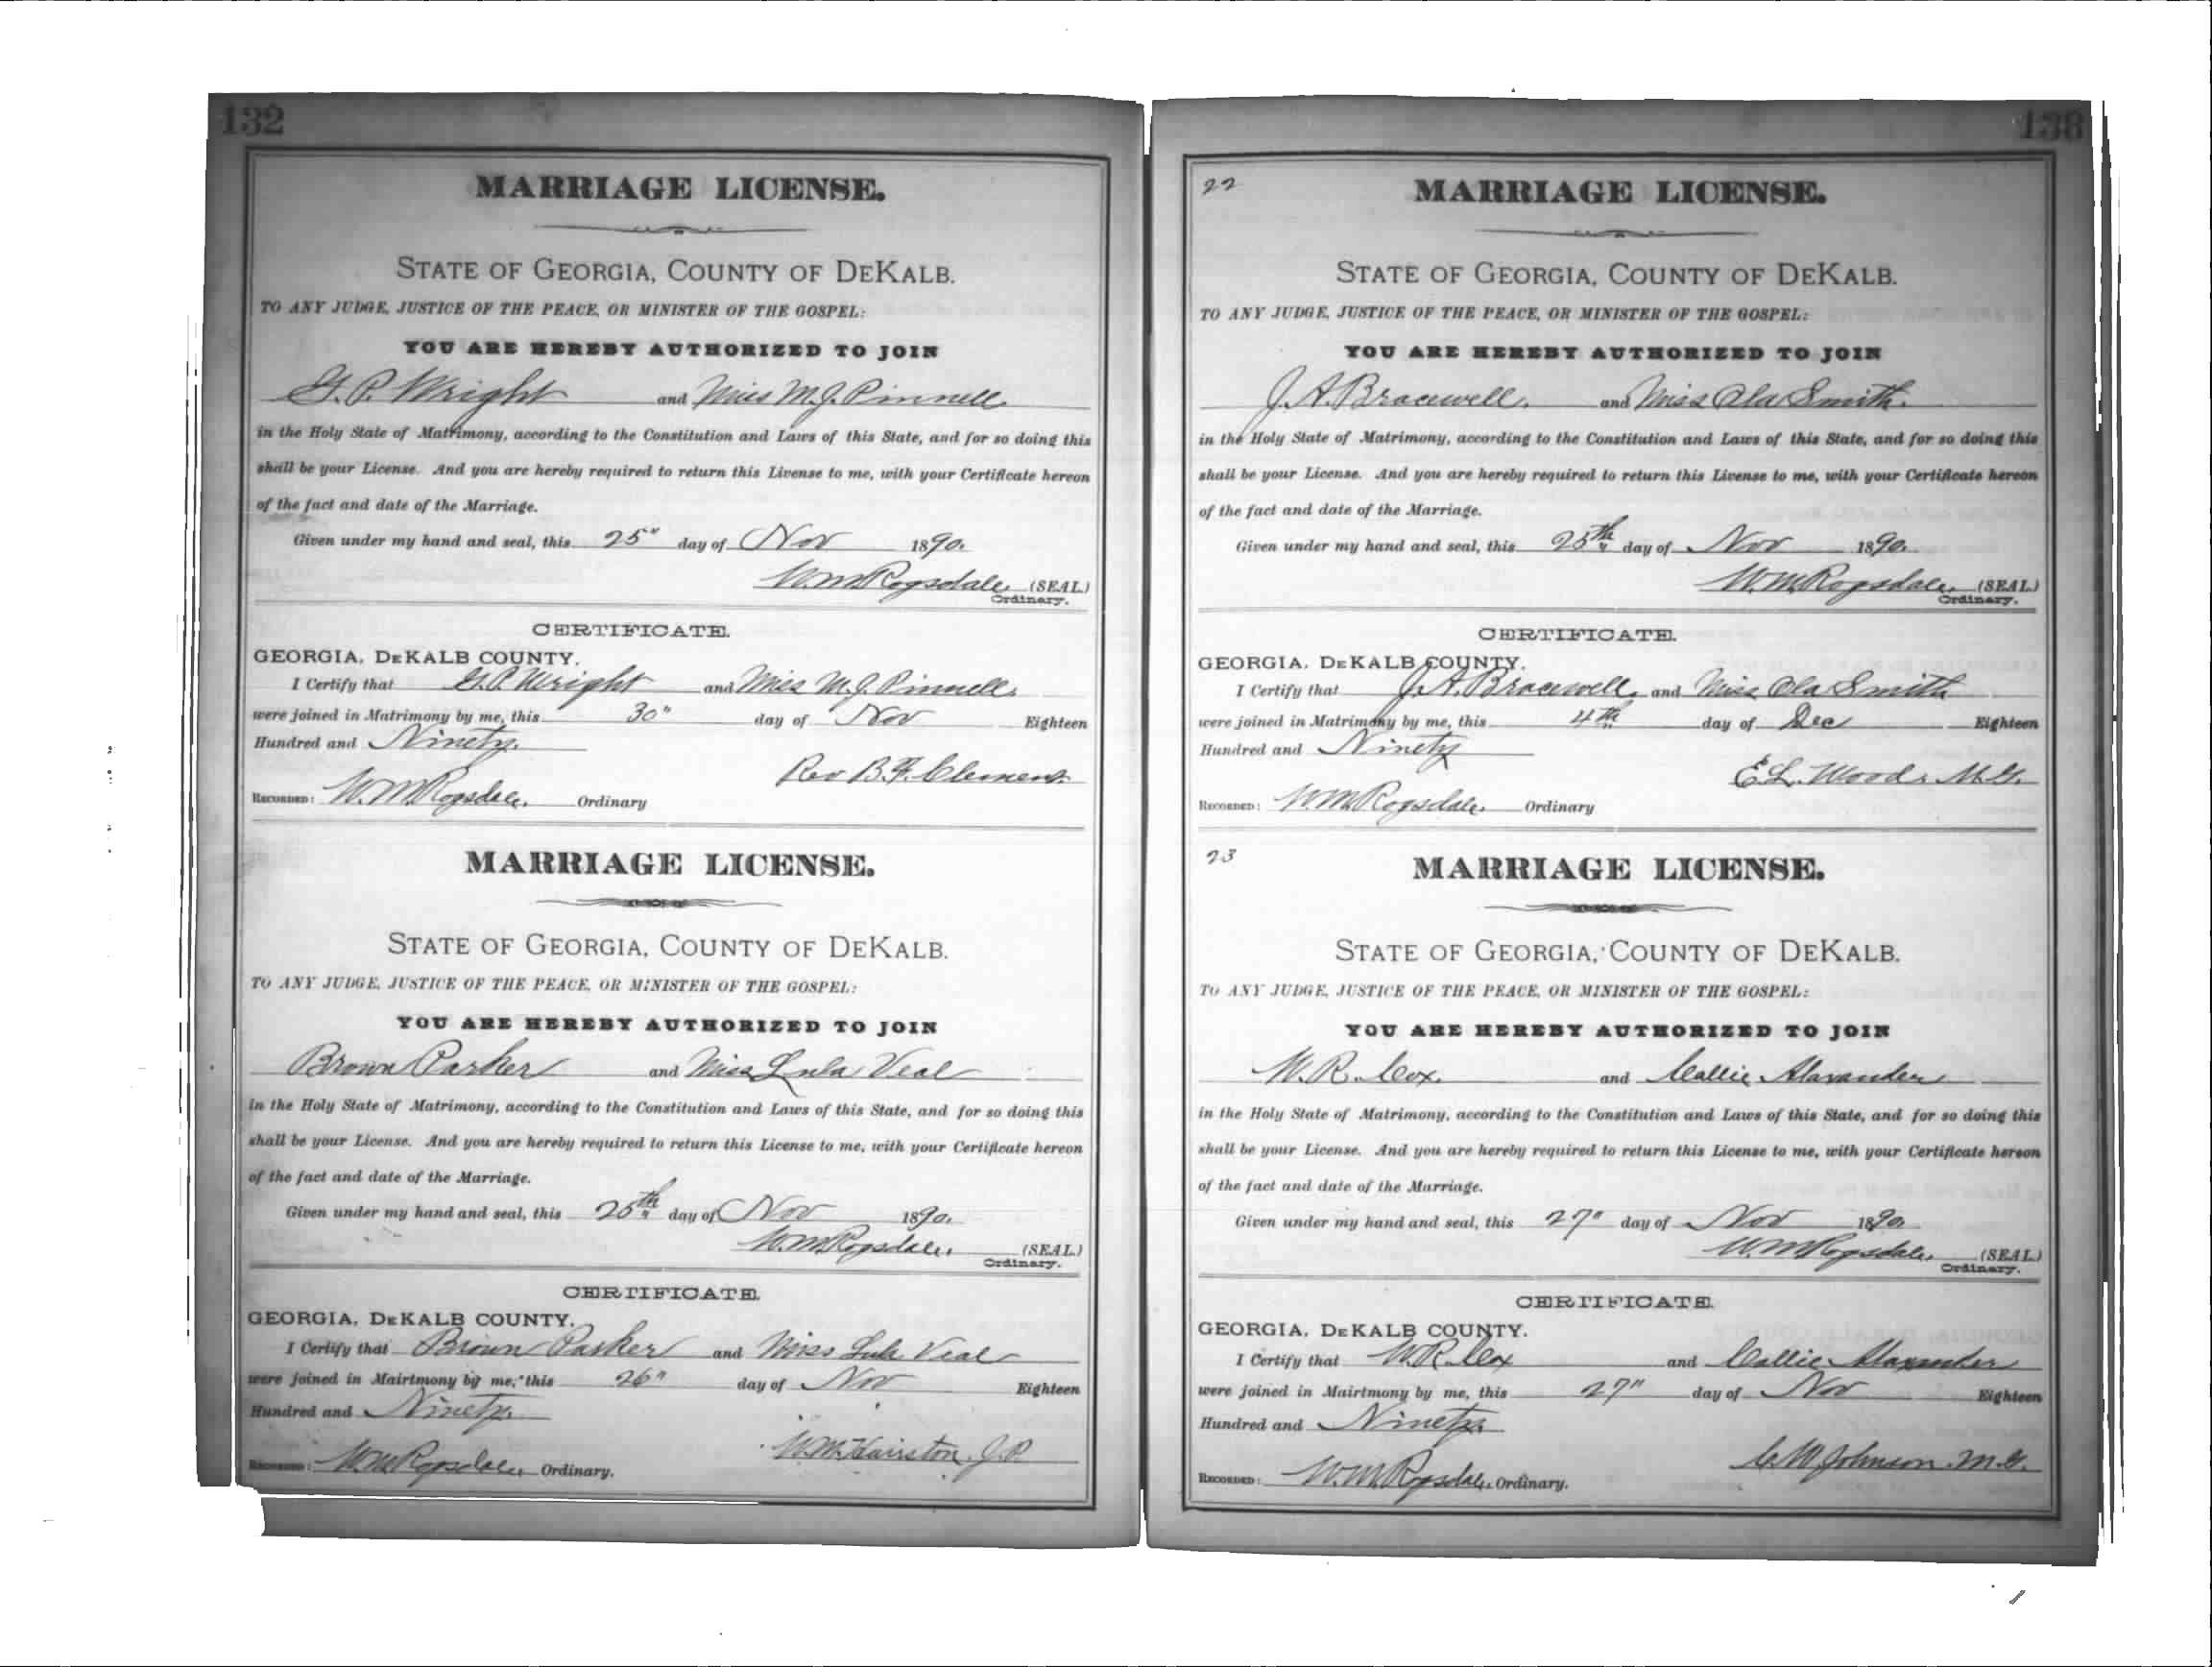 132
MARRIAGE LICENSE.
STATE OF GEORGIA, COUNTY OF DEKALB.
TO ANY JUDGE, JUSTICE OF THE PEACE, OR MINISTER OF THE GOSPEL:
YOU ARE HEREBY AUTHORIZED TO JOIN
G. P. Wright and Miss M. J. Pinnell
in the Holy State of Matrimony, according to the Constitution and Laws of this State, and for so doing this
shall be your License. And you are hereby required to return this License to me, with your Certificate hereon
of the fact and date of the Marriage.
Given under my hand and seal, this 25" day of Nov 1890.
W. M. Ragsdale, (SEAL)
Ordinary.
CERTIFICATE.
GEORGIA, DEKALB COUNTY.
I Certify that G. P. Wright and Miss M. J. Pinnell
were joined in Matrimony by me, this 30" day of Nov Eighteen
Hundred and Ninety.
Rev B. F. Clement
RECORDED: W. M. Ragsdale, Ordinary
MARRIAGE LICENSE.
STATE OF GEORGIA, COUNTY OF DEKALB.
TO ANY JUDGE, JUSTICE OF THE PEACE, OR MINISTER OF THE GOSPEL:
YOU ARE HEREBY AUTHORIZED TO JOIN
Brown Parker and Miss Lula Veal
in the Holy State of Matrimony, according to the Constitution and Laws of this State, and for so doing this
shall be your License. And you are hereby required to return this License to me, with your Certificate hereon
of the fact and date of the Marriage.
Given under my hand and seal, this 25th day of Nov 1890.
W. M. Ragsdale, (SEAL)
Ordinary.
CERTIFICATE.
GEORGIA, DEKALB COUNTY.
I Certify that Brown Parker and Miss Lula Veal
were joined in Mairtmony by me, this 26" day of Nov Eighteen
Hundred and Ninety.
W. M. Hairston, J. P.
RECORDED: W. M. Ragsdale, Ordinary.
133
22
MARRIAGE LICENSE.
STATE OF GEORGIA, COUNTY OF DEKALB.
TO ANY JUDGE, JUSTICE OF THE PEACE, OR MINISTER OF THE GOSPEL:
YOU ARE HEREBY AUTHORIZED TO JOIN
J. A. Bracewell, and Miss Ola Smith.
in the Holy State of Matrimony, according to the Constitution and Laws of this State, and for so doing this
shall be your License. And you are hereby required to return this License to me, with your Certificate hereon
of the fact and date of the Marriage.
Given under my hand and seal, this 25th day of Nov 1890.
W. M. Ragsdale, (SEAL)
Ordinary.
CERTIFICATE.
GEORGIA, DEKALB COUNTY.
I Certify that J. A. Bracewell, and Miss Ola Smith
were joined in Matrimony by me, this 4th day of Dec Eighteen
Hundred and Ninety
E. L. Woods M. G.
RECORDED: W. M. Ragsdale, Ordinary
23
MARRIAGE LICENSE.
STATE OF GEORGIA, COUNTY OF DEKALB.
TO ANY JUDGE, JUSTICE OF THE PEACE, OR MINISTER OF THE GOSPEL:
YOU ARE HEREBY AUTHORIZED TO JOIN
W. R. Cox. and Callie Alaxander
in the Holy State of Matrimony, according to the Constitution and Laws of this State, and for so doing this
shall be your License. And you are hereby required to return this License to me, with your Certificate hereon
of the fact and date of the Marriage.
Given under my hand and seal, this 27" day of Nov 1890
W. M. Ragsdale, (SEAL)
Ordinary.
CERTIFICATE.
GEORGIA, DEKALB COUNTY.
I Certify that W. R. Cox and Callie Alaxander
were joined in Mairtmony by me, this 27" day of Nov Eighteen
Hundred and Ninety.
C. W. Johnson. M. G.
RECORDED: W. M. Ragsdale, Ordinary.